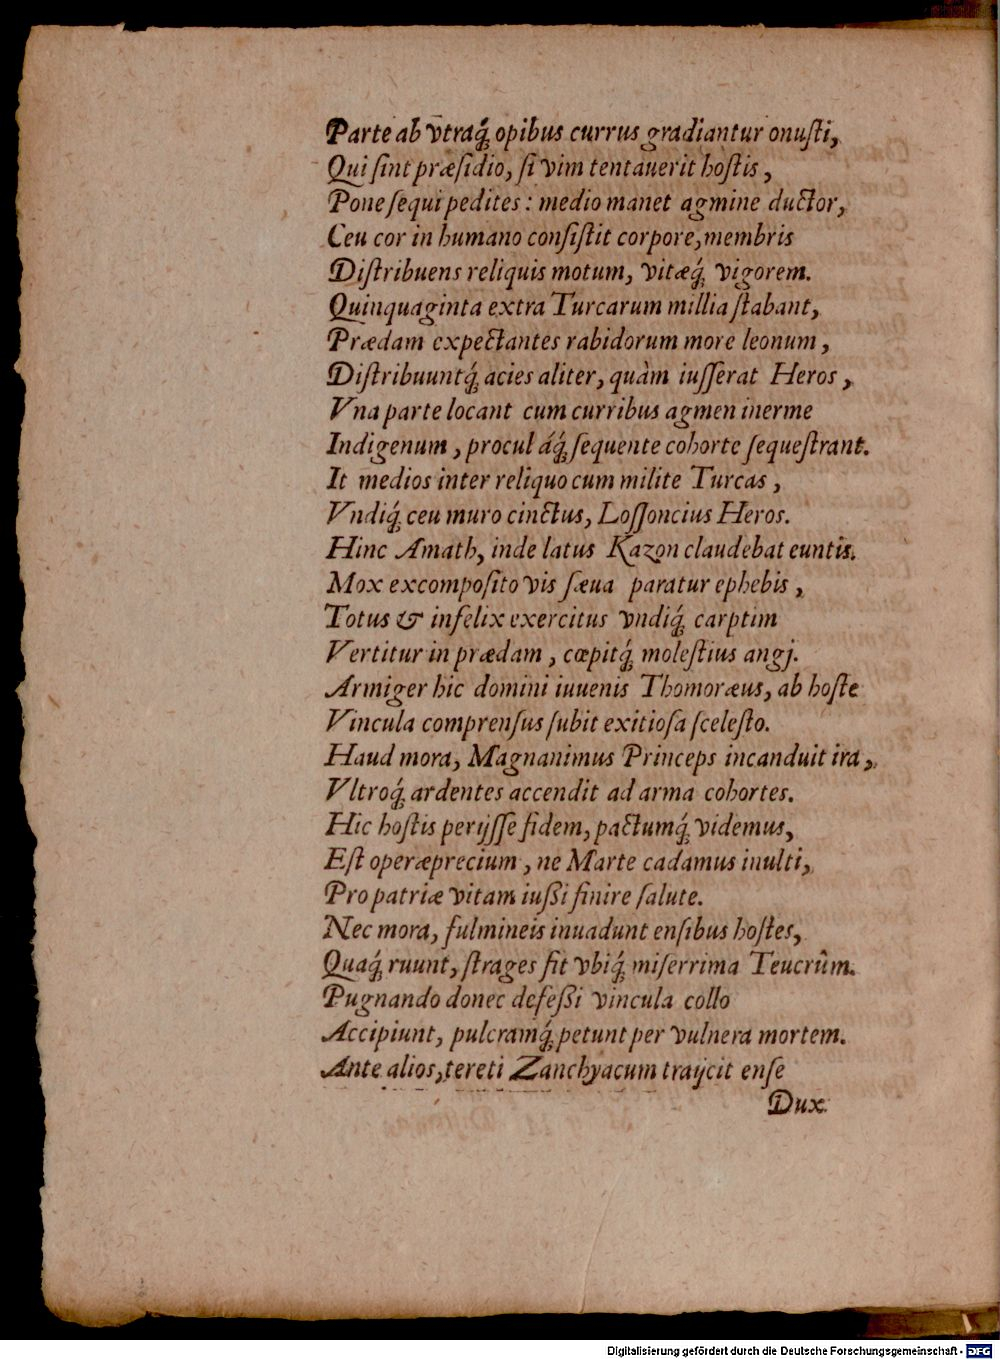 Parte ab vtraq́; opibus currus gradiantur onuſti,
Qui ſint præſidio, ſi vim tentauerit hoſtis,
Pone ſequi pedites: medio manet agmine ductor,
Ceu cor in humano conſiſtit corpore, membris
Diſtribuens reliquis motum, vitæq́; vigorem.
Quinquaginta extra Turcarum millia ſtabant,
Prædam expectantes rabidorum more leonum,
Diſtribuuntq́; acies aliter, quàm iuſſerat Heros,
Vna parte locant cum curribus agmen inerme
Indigenum, procul áq́; ſequente cohorte ſequeſtrant.
It medios inter reliquo cum milite Turcas,
Vndiq́; ceu muro cinctus, Loſſoncius Heros.
Hinc Amath, inde latus Kazon claudebat euntis.
Mox excompoſito vis ſæua paratur ephebis,
Totus & infelix exercitus vndiq́; carptim
Vertitur in prædam, cœpitq́; moleſtius angj.
Armiger hic domini iuuenis Thomoræus, ab hoſte
Vincula comprenſus ſubit exitioſa ſceleſto.
Haud mora, Magnanimus Princeps incanduit ira,
Vltroq́; ardentes accendit ad arma cohortes.
Hic hoſtis perijſſe fidem, pactumq́; videmus,
Eſt operæprecium, ne Marte cadamus inulti,
Pro patriæ vitam iuſſi finire ſalute.
Nec mora, fulmineis inuadunt enſibus hoſtes,
Quaq́; ruunt, ſtrages fit vbiq́; miſerrima Teucrûm.
Pugnando donec defeſſi vincula collo
Accipiunt, pulcramq́; petunt per vulnera mortem.
Ante alios, tereti Zanchyacum traijcit enſe
Dux
Digitalisierung gefördert durch die Deutsche Forschungsgemeinschaft - DFG